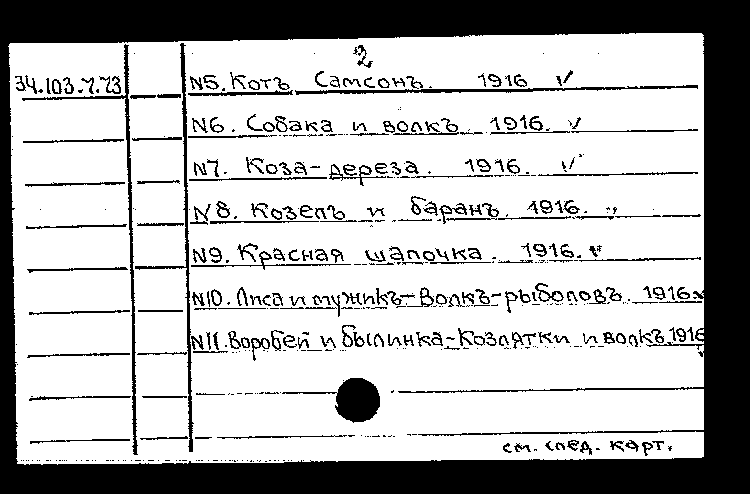 2
34.103.7.73 N5. Котъ Самсонъ. 1916 ✓
N6. Собака и волкъ. 1916. ✓
N7. Коза-дереза. 1916. ✓
N8. Козелъ и баранъ. 1916. ✓
N9. Красная шапочка. 1916. ✓
N10. Лиса и мужикъ-Волкъ-рыболовъ. 1916 ✓
N11. Воробей и былинка-Козлятки и волкъ. 1916 ✓
см. след. карт.